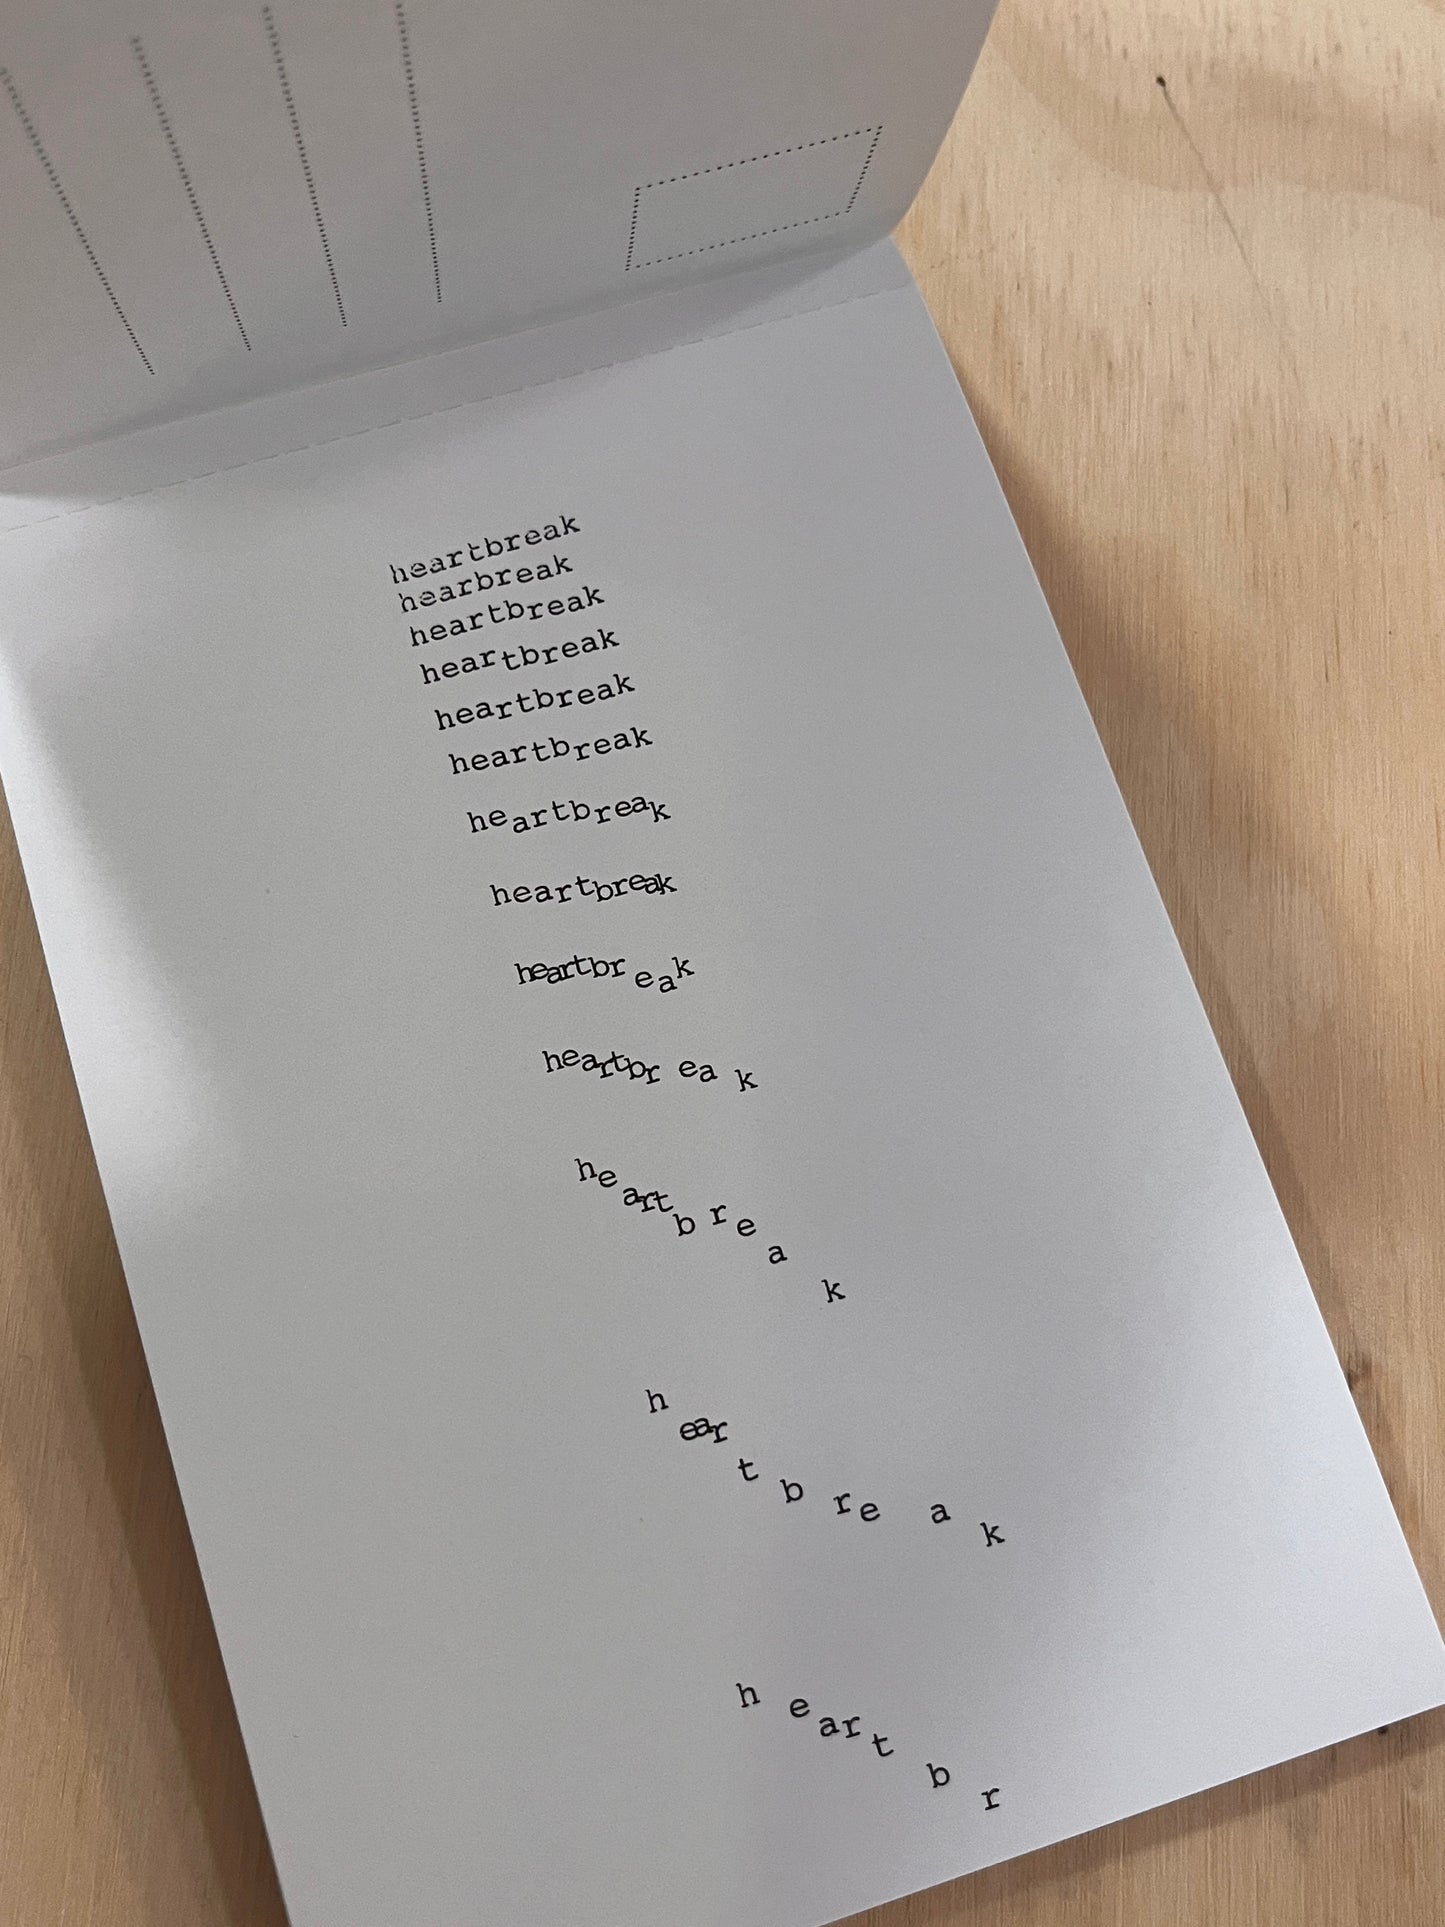 heartbreak
hearbreak
heartbreak
heartbreak
heartbreak
heartbreak
heartbreak
heartbreak
heartbr eak
heartbr ea k
he art b r e a k
h ear t b re a k
h e ar t b r